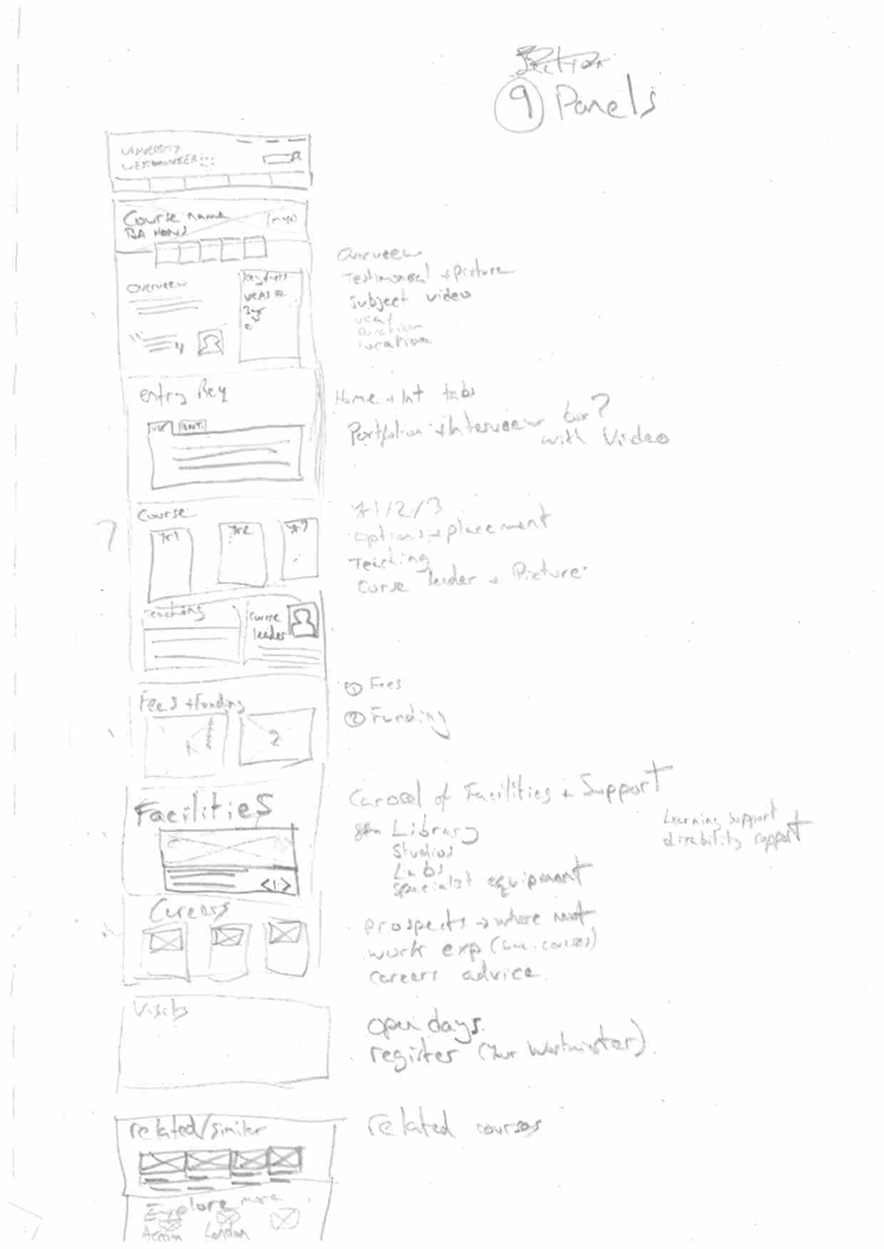 Section
9 Panels
UNIVERSITY
WESTMINSTER
Course name
BA HONS
(img)
Overview
Key facts
UCAS
3yr
Overview
Testimonial + picture
Subject video
ucas
duration
location
entry Req
UK INT
Home + Int tabs
Portfolio + Interview box?
with Video
?
Course
Yr1 Yr2 Yr3
Yr1/2/3
options + placement
Teaching
Curse leader + Picture
Teaching
Course
leader
Fees + Funding
1 2
① Fees
② Funding
Facilities
<1>
Carosel of Facilities + Support
Library
Studios
Labs
specialist equipment
Learning support
disability support
Careers
prospects → where next
work exp (some courses)
careers advice
Visits
open days
register (Your Westminster)
related/similar
related courses
Explore more
Accom London